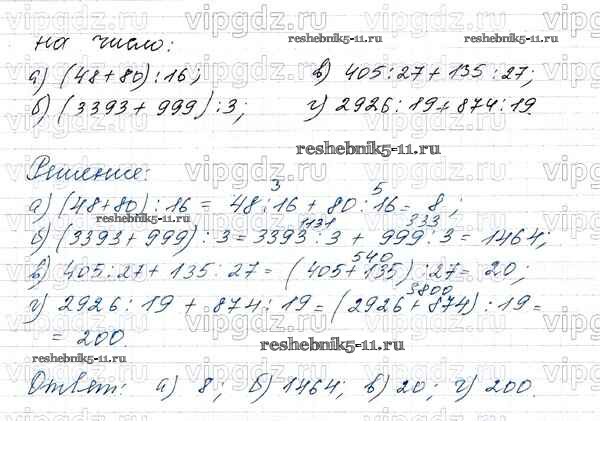 на число:
reshebnik5-11.ru
а) (48+80):16;
в) 405:27+135:27;
б) (3393+999):3;
г) 2926:19+874:19.
reshebnik5-11.ru
Решение:
3 5
а) (48+80):16 = 48:16 + 80:16 = 8;
reshebnik5-11.ru
1131 333
б) (3393+999):3 = 3393:3 + 999:3 = 1464;
540
в) 405:27+135:27 = (405+135):27 = 20;
3800
г) 2926:19 + 874:19 = (2926+874):19 =
= 200.
reshebnik5-11.ru
reshebnik5-11.ru
Ответ: а) 8; б) 1464; в) 20; г) 200.
vipgdz.ru vipgdz.ru vipgdz.ru